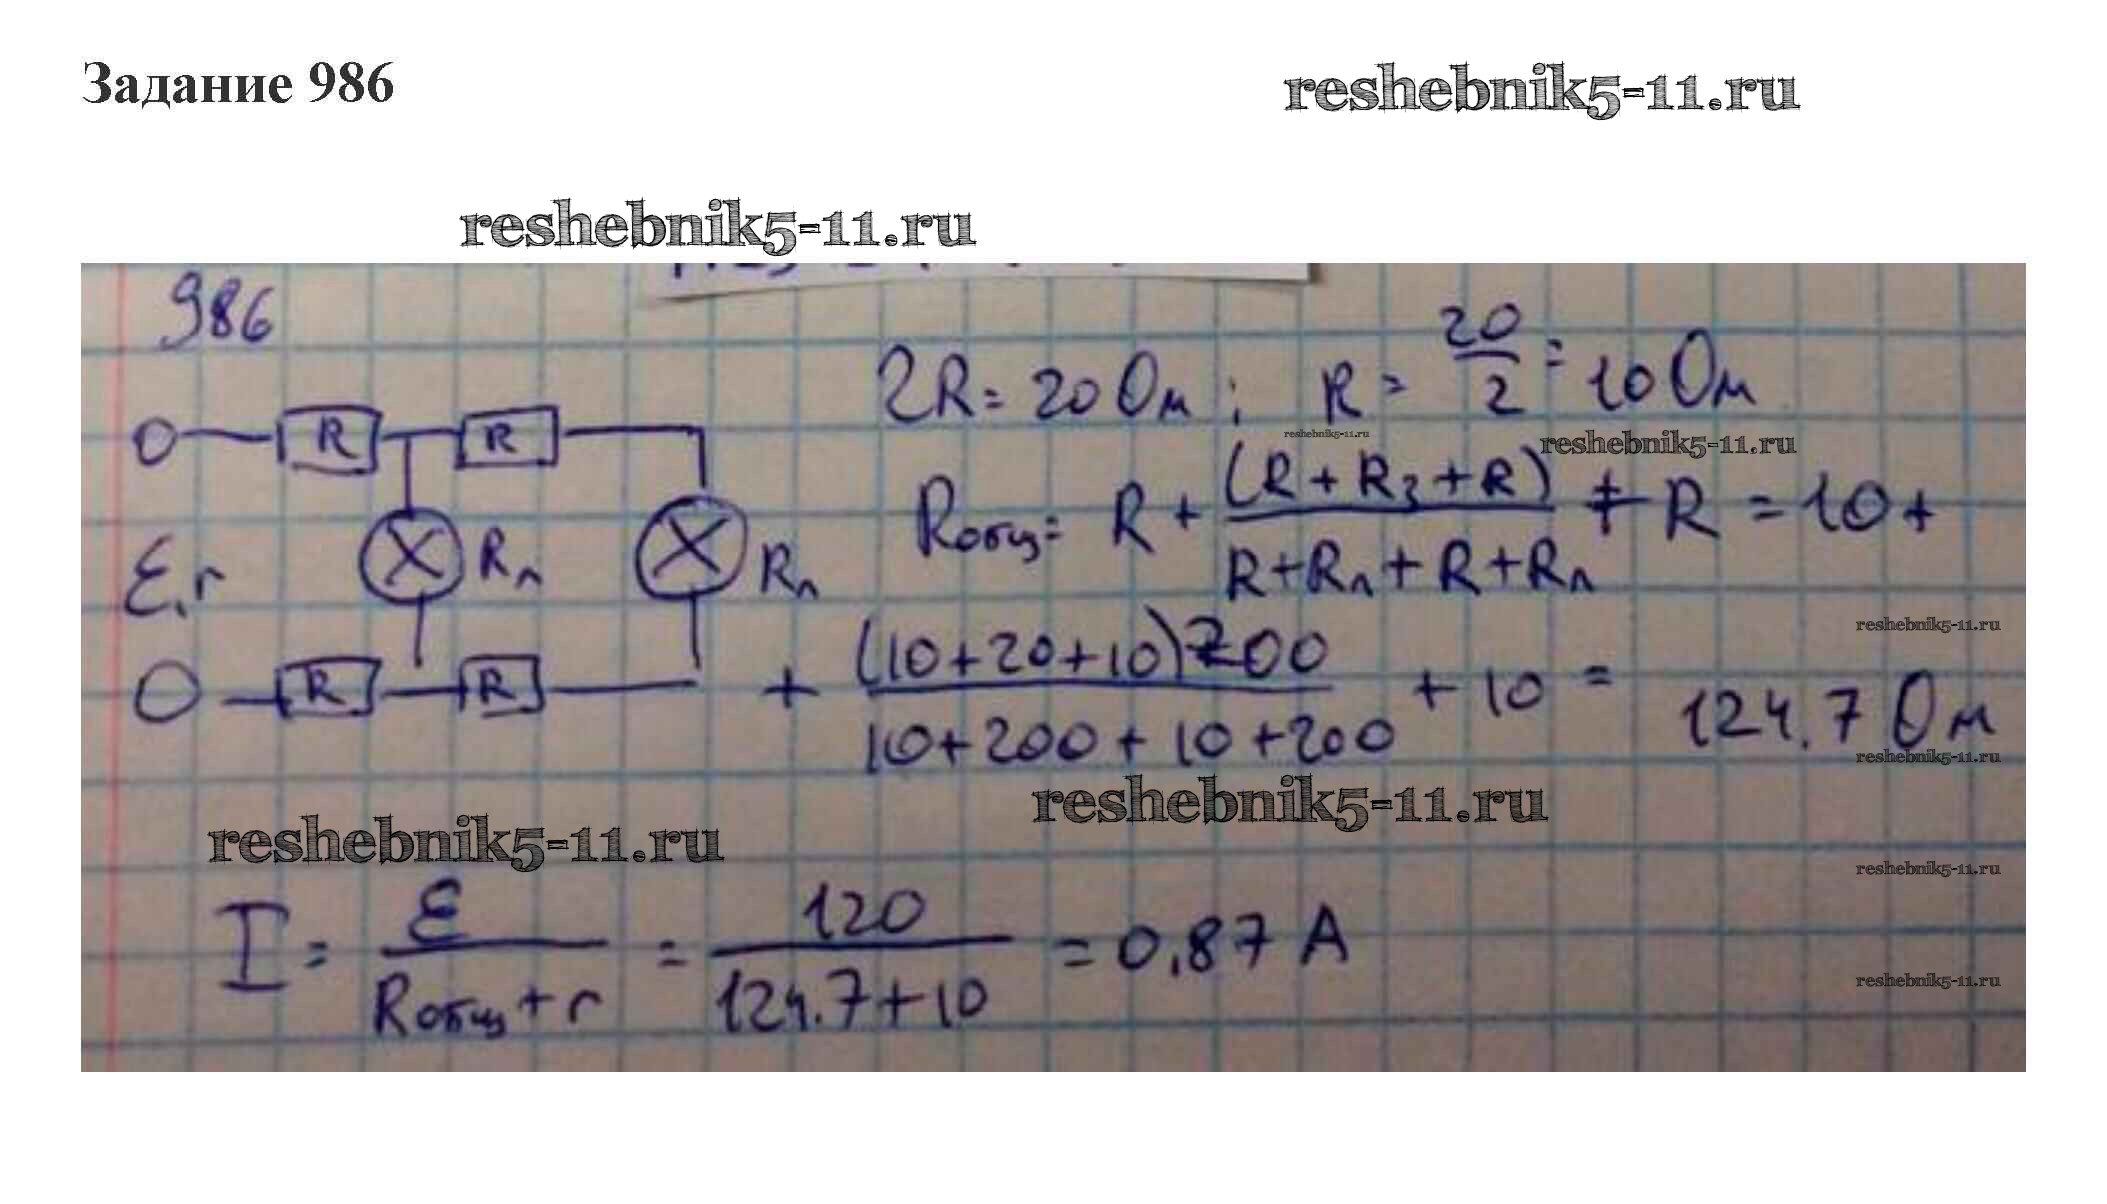 Задание 986
reshebnik5-11.ru
reshebnik5-11.ru
986
2R = 20 Ом ; R = 20/2 = 10 Ом
R R
reshebnik5-11.ru
reshebnik5-11.ru
Rобщ = R + (R + R3 + R) / (R + Rл + R + Rл) + R = 10 +
ℰ, r Rл Rл
reshebnik5-11.ru
+ (10+20+10)200 / (10+200+10+200) + 10 = 124.7 Ом
R R
reshebnik5-11.ru
reshebnik5-11.ru
reshebnik5-11.ru
reshebnik5-11.ru
I = ℰ / (Rобщ + r) = 120 / (124.7+10) = 0.87 А
reshebnik5-11.ru